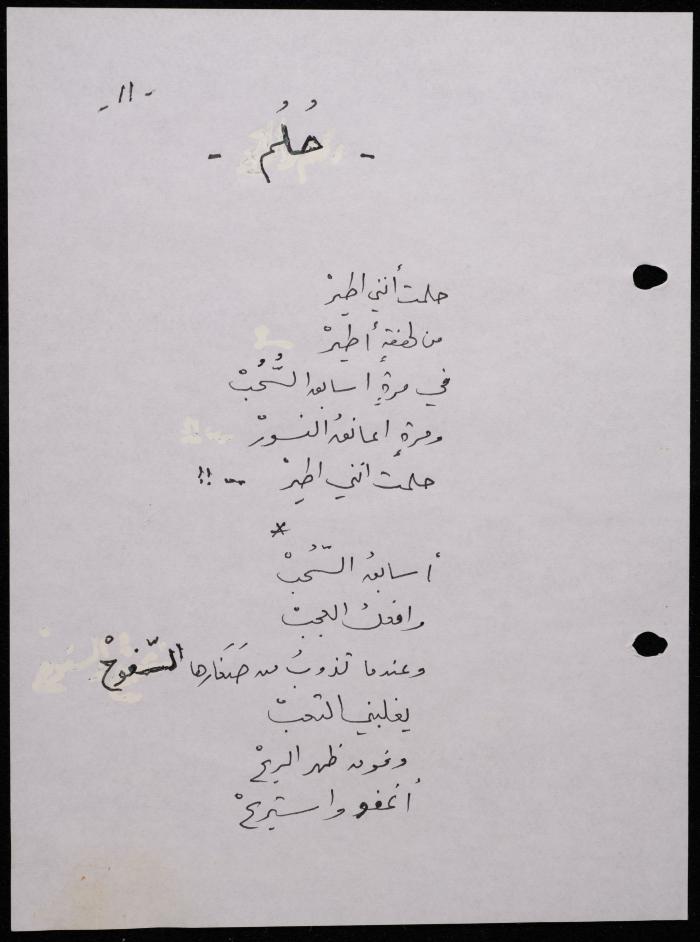 - ١١ -
- حُلُم -
حلمت أنني اطيرْ
من لهفةٍ أطيرْ
في مرةٍ اسابق السُّحُبْ
ومرةٍ اعانقُ النسورْ
حلمت انني اطيرْ .. !!
*
أسابقُ السُّحبْ
وافعلُ العجبْ
وعندما تذوبُ من صَغَارِها السّفوحْ
يغلبني التعبْ
وفوق ظهر الريحْ
أغفو واستريحْ